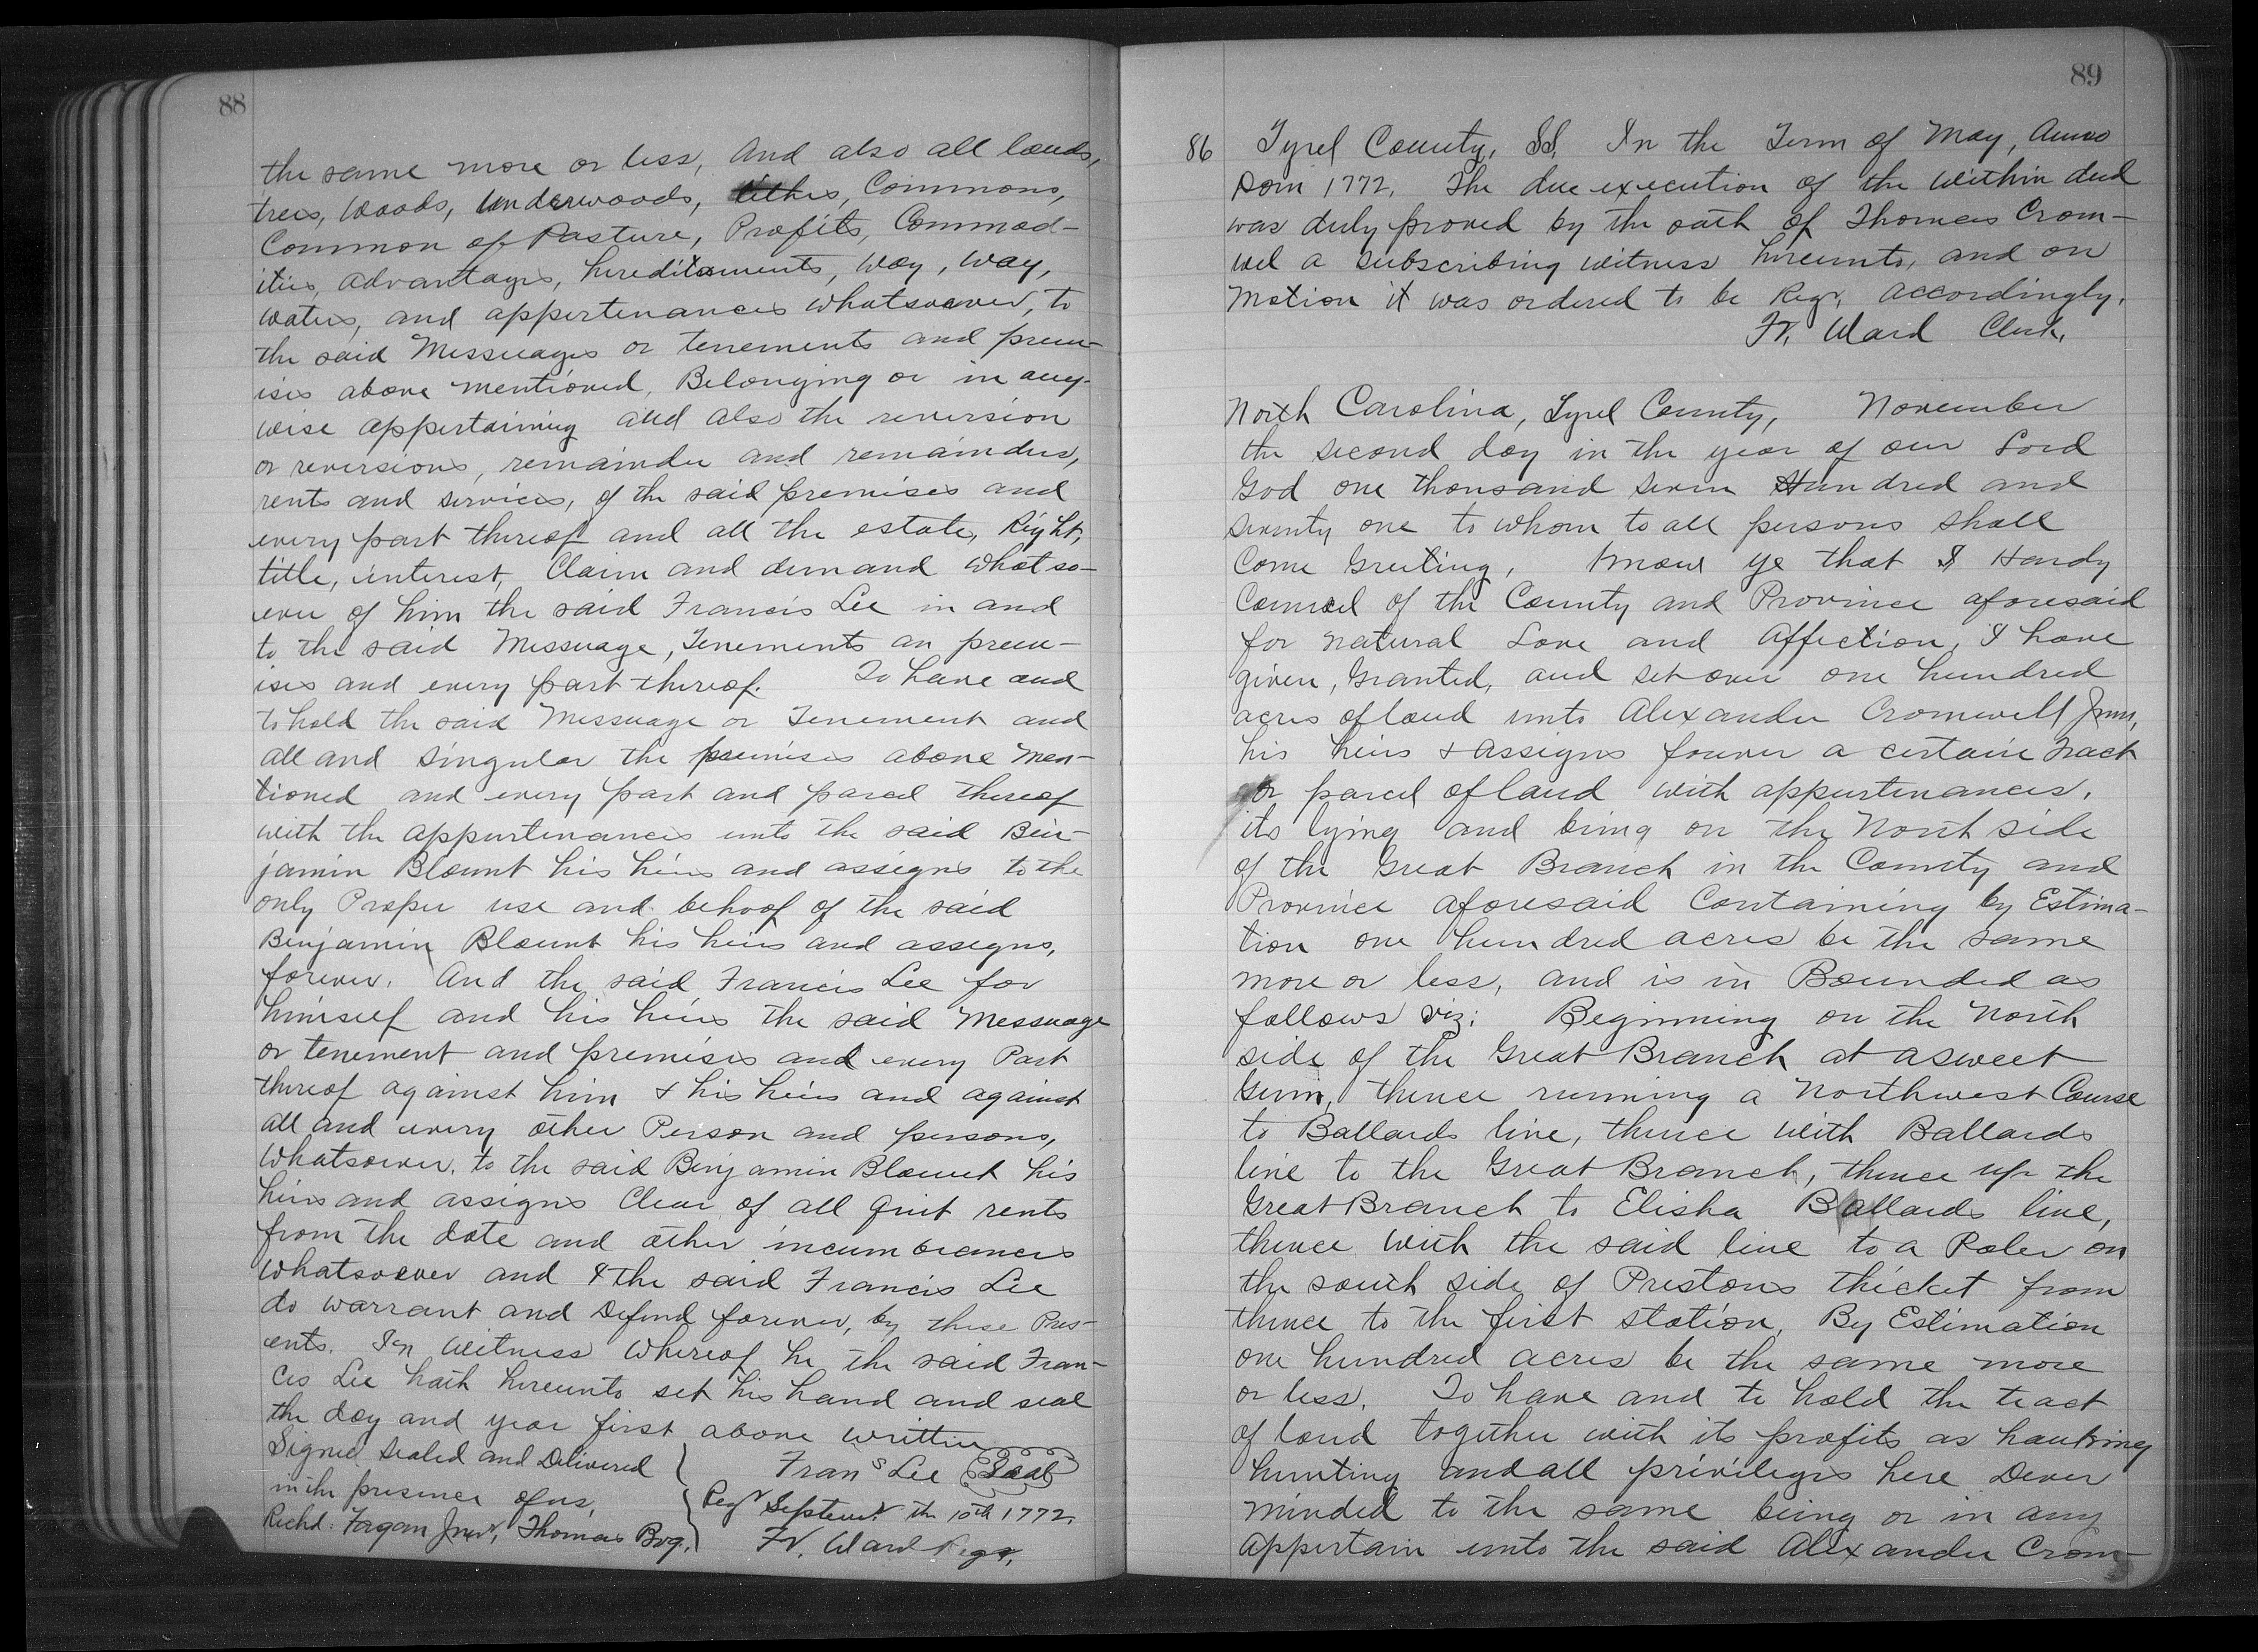 88
the same more or less, And also all lands,
trees, Woods, Underwoods, tithes, Commons,
Common of Pasture, Profits, Commod-
ities, advantages, hereditaments, Way, Way,
waters, and appertenances whatsoever, to
the said Messuages or tenements and prem-
ises above mentioned, Belonging or in any-
wise appertaining and also the reversion
or reversions, remainder and remainders,
rents and services, of the said premises and
every part thereof and all the estate, Right,
title, interest, Claim and demand whatso-
ever of him the said Francis Lee in and
to the said Messuage, Tenements an prem-
ises and every part thereof. To have and
to hold the said Messuage or Tenement and
all and Singular the premises above men-
tioned and every part and parcel thereof
with the appurtenances unto the said Ben-
jamin Blount his heirs and assigns to the
only Proper use and behoof of the said
Benjamin Blount his heirs and assigns,
forever. And the said Francis Lee for
himself and his heirs the said Messuage
or tenement and premises and every Part
thereof against him & his heirs and against
all and every other Person and persons,
Whatsoever, to the said Benjamin Blount his
heirs and assigns Clear of all Quit rents
from the date and other incumbrances
whatsoever and & the said Francis Lee
do warrant and Defend forever, by these Pres-
ents. In Witness Whereof he the said Fran-
cis Lee hath hereunto set his hand and seal
the day and year first above written
Signed Sealed and Delivered
in the presence of us,
Richd: Fagan Junr, Thomas Bog.
Frans Lee Seal
Regr Septemr the 10th 1772.
Fr. Ward Regr.
89
86 Tyrel County, SS. In the Term of May, Anno
Dom 1772. The due execution of the within deed
was duly proved by the oath of Thomas Crom-
wel a Subscribing witness hereunto, and on
Motion it was ordered to be Regr. accordingly.
Fr. Ward Clerk.
North Carolina, Tyrel County, November
the second day in the year of our Lord
God one thousand seven Hundred and
seventy one to whom to all persons shall
Come Greeting, Know ye that I Hardy
Councel of the County and Province aforesaid
for natural Love and Affection, I have
given, Granted, and set over one hundred
acres of land unto Alexander Cromwell Junr,
his heirs & assigns forever a certain tract
or parcel of land with appurtenances,
its lying and being on the North side
of the Great Branch in the County and
Province aforesaid Containing by Estima-
tion one hundred acres be the same
more or less, and is in Bounded as
follows viz: Beginning on the North
side of the Great Branch at a sweet
Gum, thence running a Northwest Course
to Ballards line, thence with Ballards
line to the Great Branch, thence up the
Great Branch to Elisha Ballards line,
thence with the said line to a Poler on
the south side of Prestons thicket from
thence to the first station, By Estimation
one hundred acres be the same more
or less. To have and to hold the tract
of land together with its profits as hauking
hunting and all privileges here Dever
minded to the same being or in any
appertain unto the said Alexander Crom-